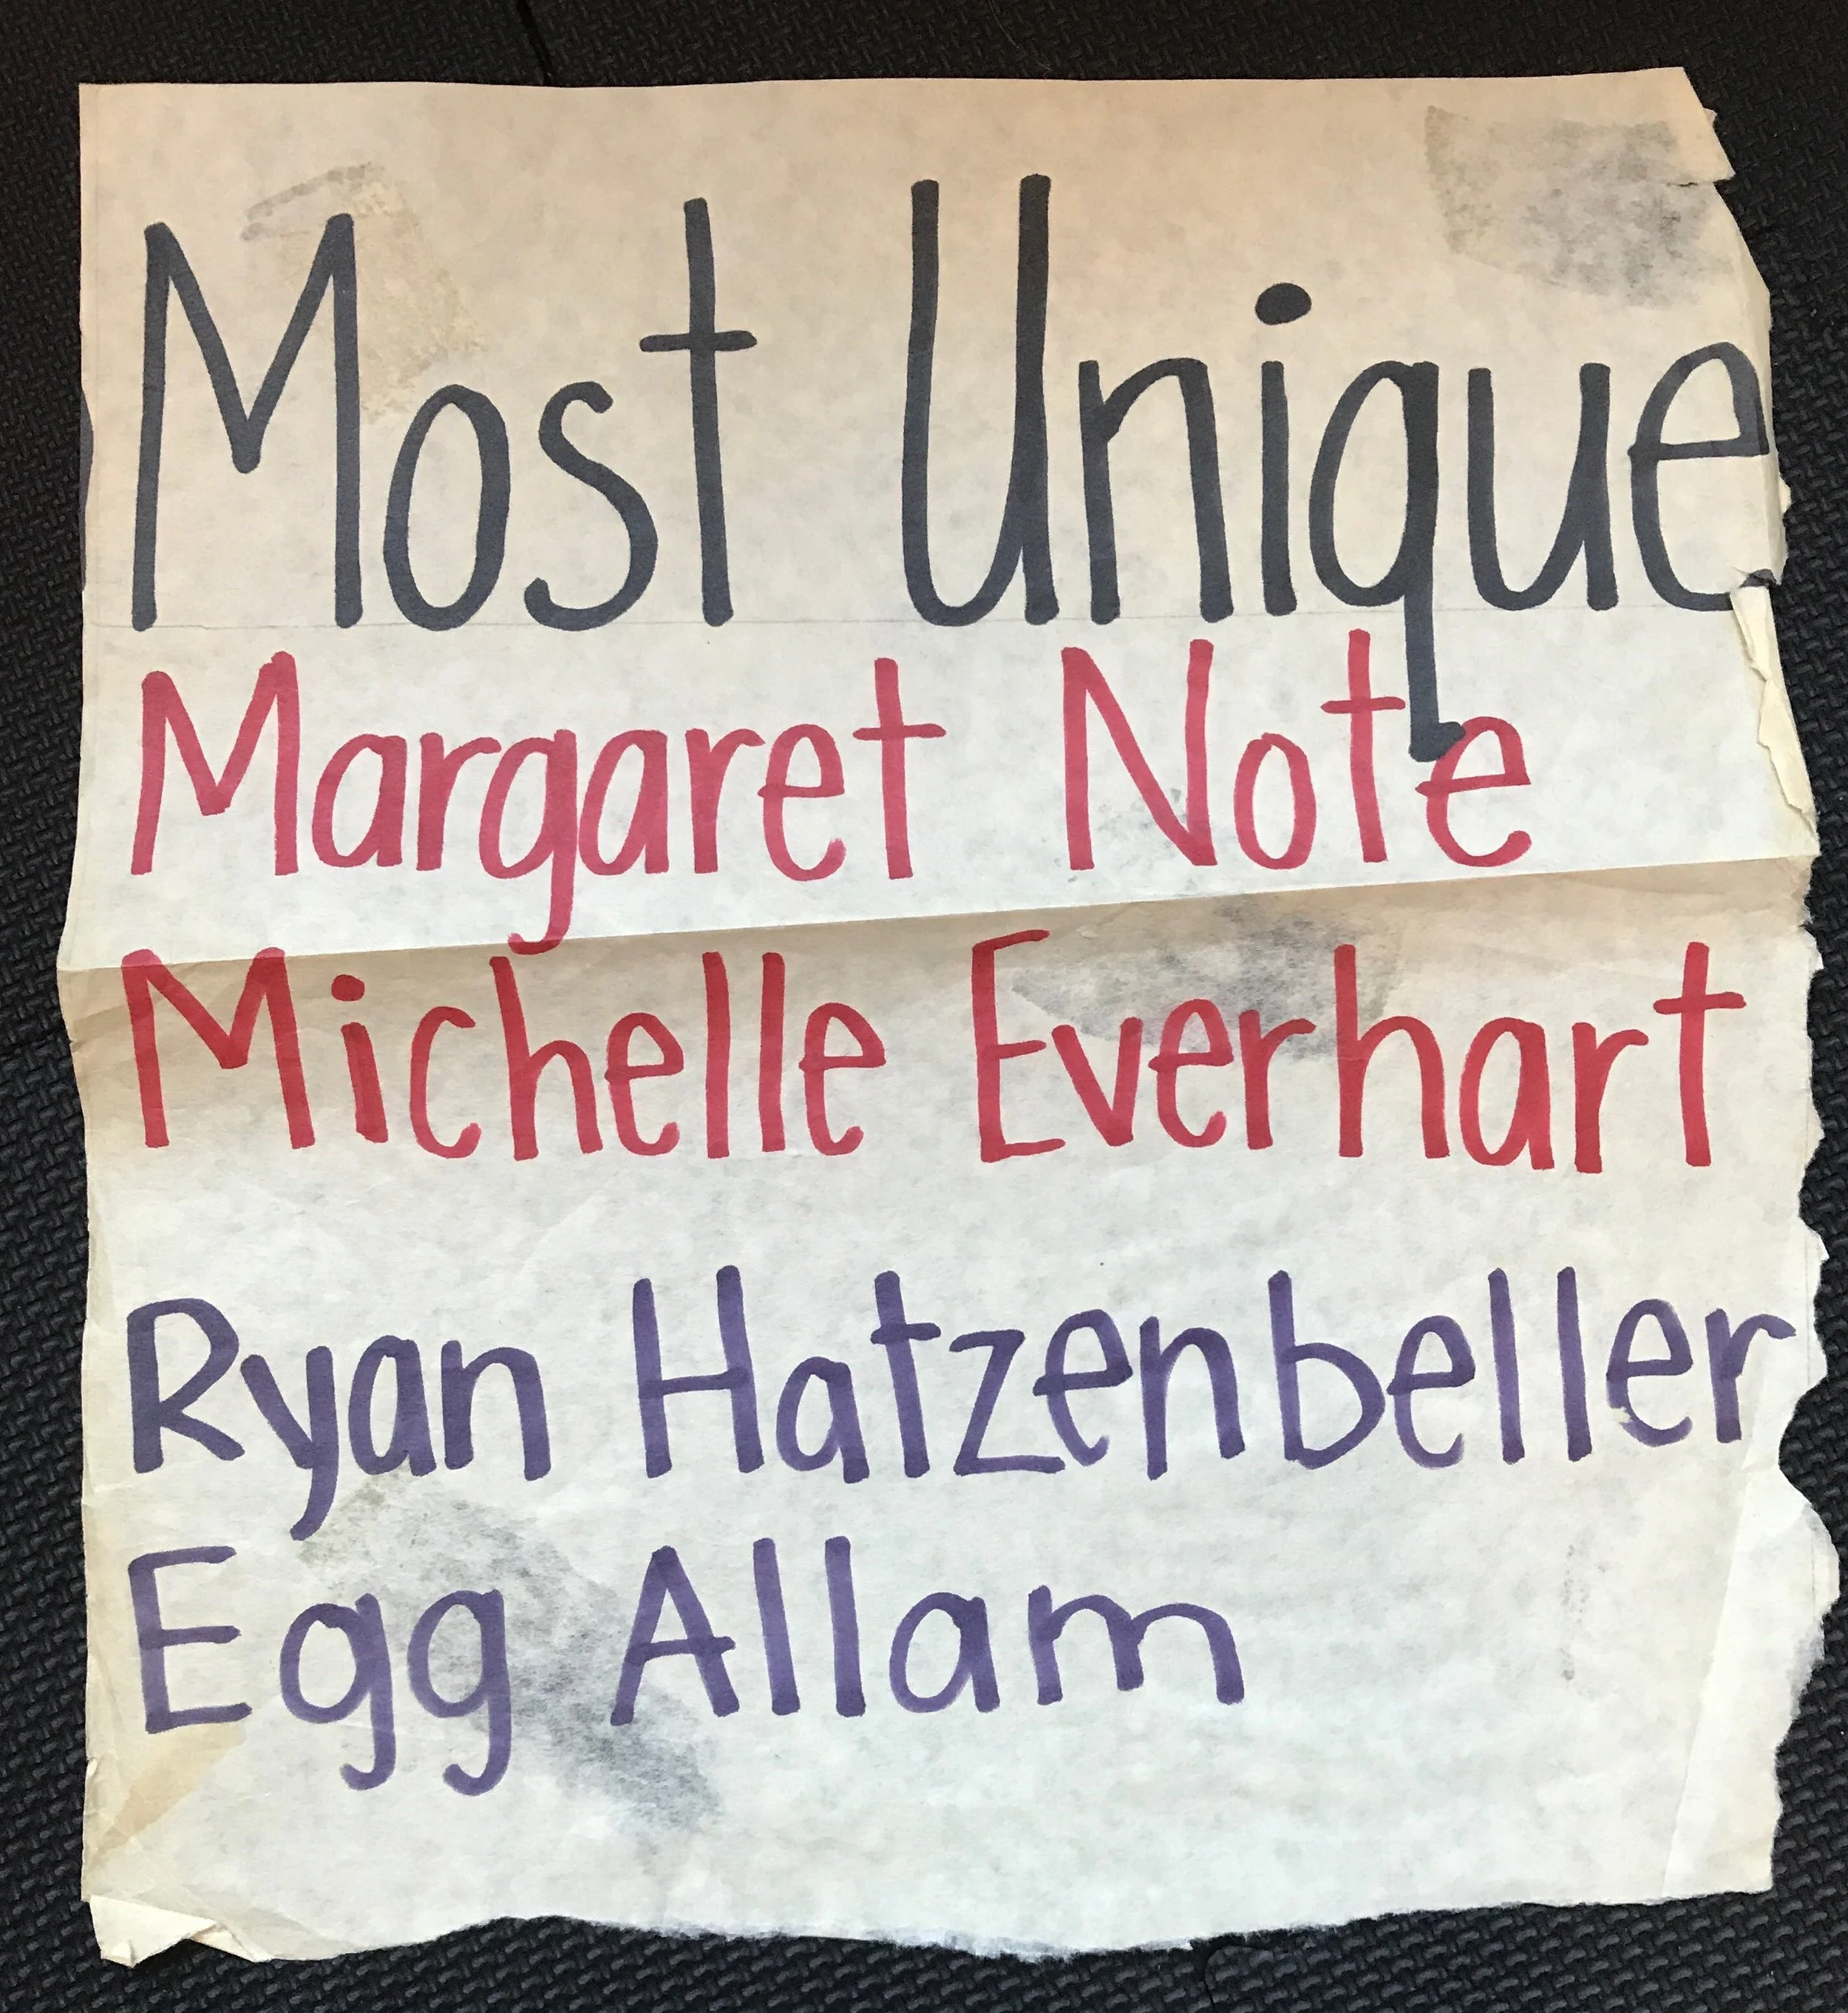 Most Unique
Margaret Note
Michelle Everhart
Ryan Hatzenbeller
Egg Allam